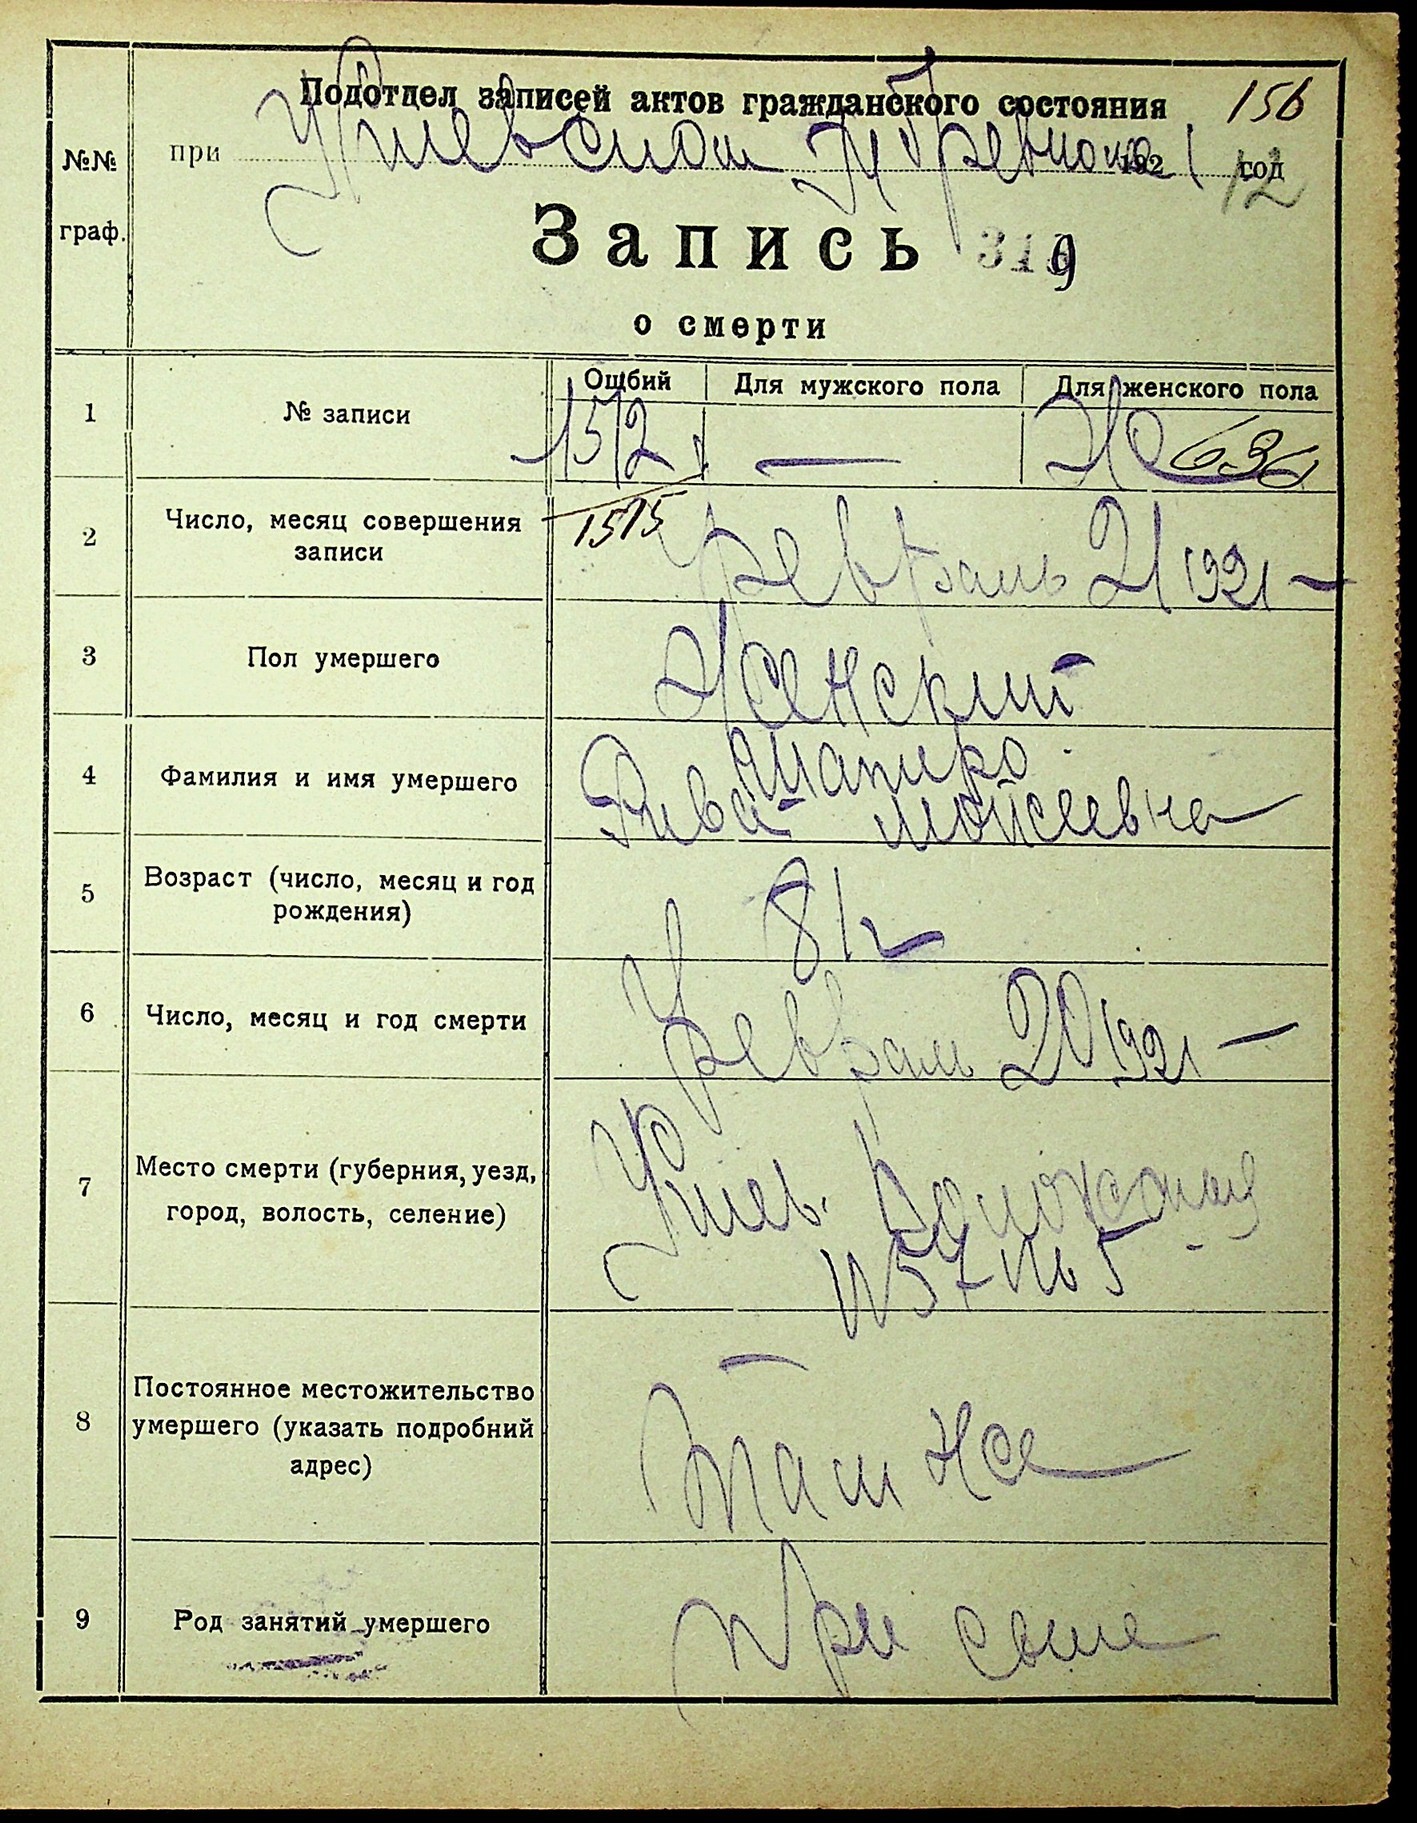 Подотдел записей актов гражданского состояния 156
№№ при Киевском Губревкоме 1921 год 12
граф.
Запись 319
о смерти
Ощбий Для мужского пола Для женского пола
1 № записи 1512 — Ж 636
1515
2 Число, месяц совершения Февраль 21 1921 —
записи
3 Пол умершего Женский
4 Фамилия и имя умершего Шапиро
Рива Мойсеевна
5 Возраст (число, месяц и год 81 л
рождения)
6 Число, месяц и год смерти Февраль 20 1921 —
7 Место смерти (губерния, уезд, Киев.
город, волость, селение) № 57 кв 5
8 Постоянное местожительство
умершего (указать подробний Там же
адрес)
9 Род занятий умершего При сыне